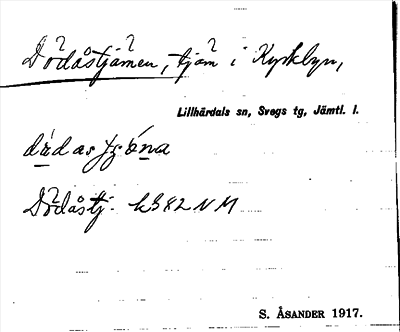 Dödåstjärnen, tjärn i Kyrkbyn,
Lillhärdals sn, Svegs tg, Jämtl. l.
dödastjöna
Dödåstj. k382NM
S. ÅSANDER 1917.